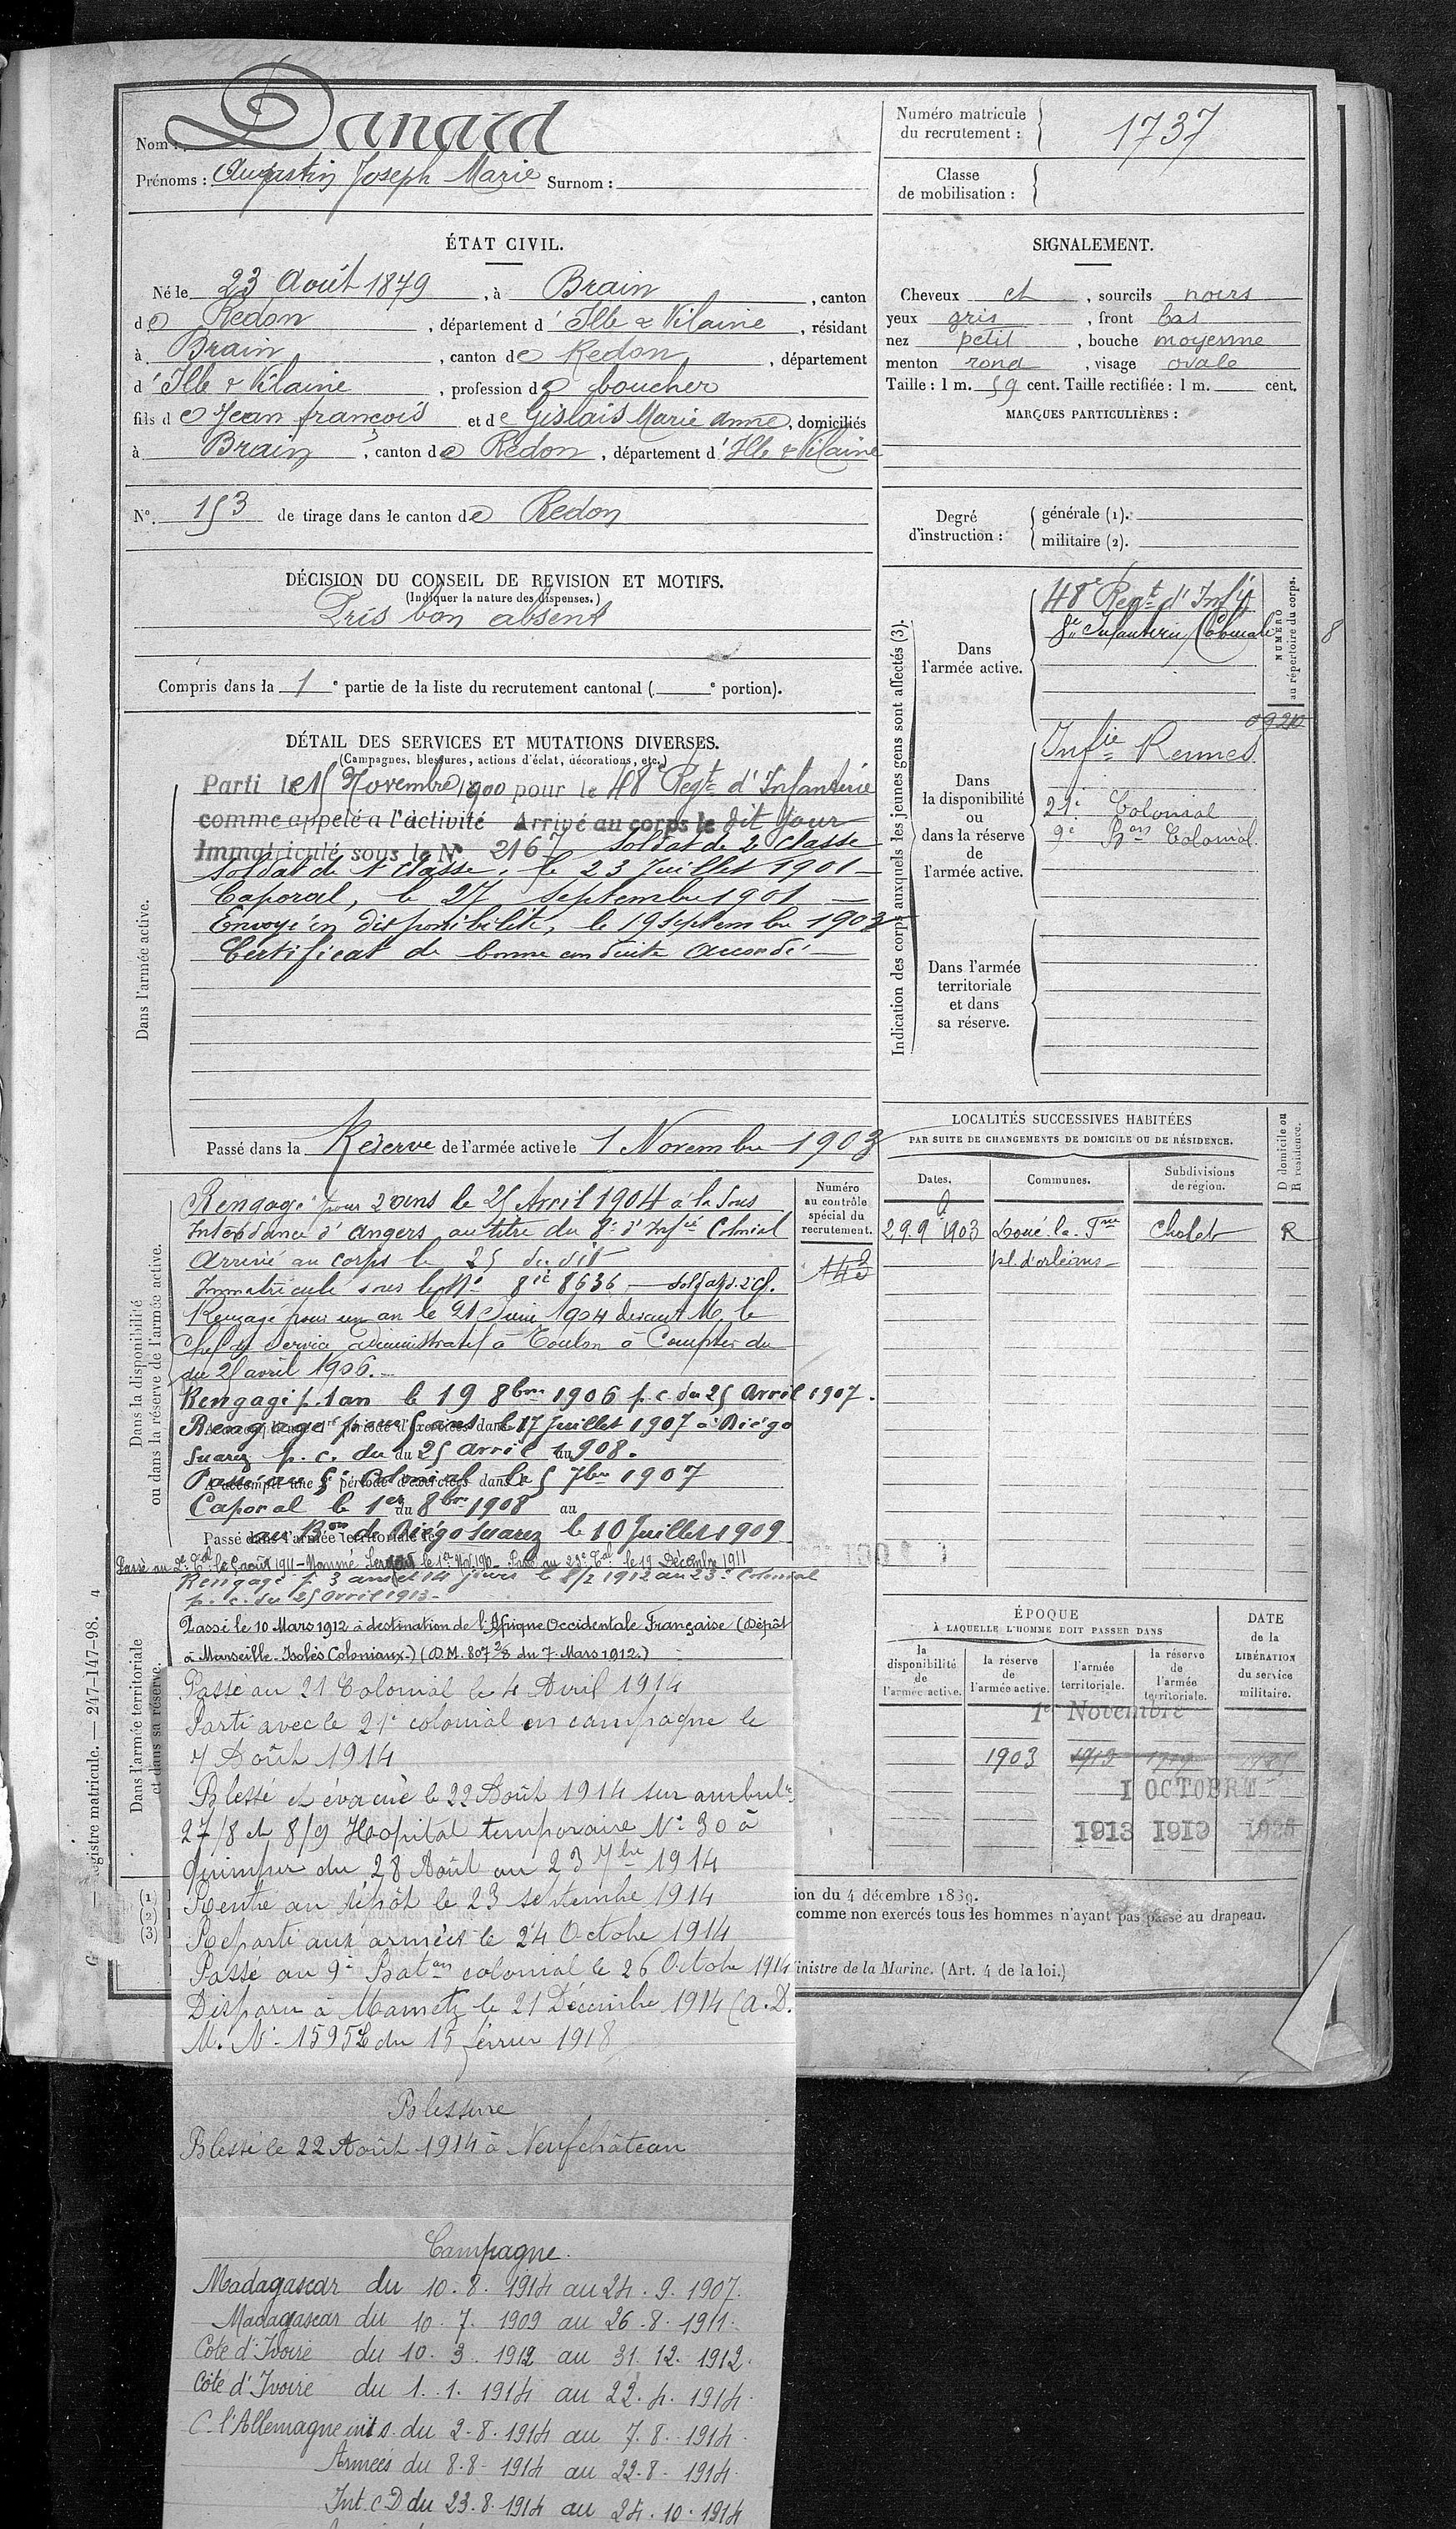 Nom : Danard
Prénoms : Augustin Joseph Marie Surnom :
Numéro matricule
du recrutement : 1737
Classe
de mobilisation :
ÉTAT CIVIL.
Né le 23 Août 1879, à Brain, canton
de Redon, département d'Ille & Vilaine, résidant
à Brain, canton de Redon, département
d'Ille & Vilaine, profession de boucher
fils de Jean françois et de Gislais Marie Anne, domiciliés
à Brain, canton de Redon, département d'Ille & Vilaine
N°. 153 de tirage dans le canton de Redon
SIGNALEMENT.
Cheveux et, sourcils noirs
yeux gris, front bas
nez petit, bouche moyenne
menton rond, visage ovale
Taille : 1 m. 59 cent. Taille rectifiée : 1 m. cent.
MARQUES PARTICULIÈRES :
Degré
d'instruction :
générale (1).
militaire (2).
DÉCISION DU CONSEIL DE REVISION ET MOTIFS.
(Indiquer la nature des dispenses.)
Pris bon absent
Compris dans la 1e partie de la liste du recrutement cantonal ( e portion).
DÉTAIL DES SERVICES ET MUTATIONS DIVERSES.
(Campagnes, blessures, actions d'éclat, décorations, etc.)
Dans l'armée active.
Parti le 15 Novembre 1900 pour le 48e Regt d'Infanterie
comme appelé à l'activité Arrivé au corps le dit jour
Immatriculé sous le N° 2167 Soldat de 2e classe
Soldat de 1e classe, le 23 Juillet 1901
Caporal, le 27 Septembre 1901
Envoyé en disponibilité, le 19 Septembre 1903
Certificat de bonne conduite accordé
Passé dans la Réserve de l'armée active le 1 Novembre 1903
Indication des corps auxquels les jeunes gens sont affectés (3).
Dans
l'armée active.
48e Regt d'Infie
8e Infanterie Coloniale
NUMÉRO
au répertoire du corps.
8
Dans
la disponibilité
ou
dans la réserve
de
l'armée active.
Infie Rennes
21e Colonial
9e Bon Colonial.
Dans l'armée
territoriale
et dans
sa réserve.
LOCALITÉS SUCCESSIVES HABITÉES
PAR SUITE DE CHANGEMENTS DE DOMICILE OU DE RÉSIDENCE.
Dates. Communes. Subdivisions
de région.
D domicile ou
R résidence.
29.9 1903 Doué-la-Fne Cholet R
pl. d'orléans
Dans la disponibilité
ou dans la réserve de l'armée active.
Numéro
au contrôle
spécial du
recrutement.
143
Rengagé pour 2 ans le 25 Avril 1904 à la Sous
Intendance d'Angers au titre du 8e d'Infie Colonial
Arrivé au corps le 25 du dit
Immatriculé sous le No 8ie 8636 — Soldat 2 cl.
Rengagé pour un an le 21 Juin 1904 devant M. le
Chef du Service administratif à Toulon à Compter du
du 25 avril 1906.
Rengagé p. 1 an le 19 8bre 1906 p.c. du 25 Avril 1907.
Rengagé pour 5 ans le 17 Juillet 1907 à Diégo
Suarez p. c. du 25 avril 1908.
Passé au 5e Colonial le 5 7bre 1907
Caporal le 1er 8bre 1908
au Bon de Diégo Suarez le 10 Juillet 1909
Passé au 2e Cal le 5 août 1911 - Nommé Sergent le 1er Nov. 190 - Passé au 23e Cal le 19 Décembre 1911
Rengagé p. 3 ans et 14 jours le 8/2 1912 au 23e Colonial
p. c. du 25 Avril 1913
Dans l'armée territoriale
et dans sa réserve.
Passé le 10 Mars 1912 à destination de l'Afrique Occidentale Française (Dépôt
à Marseille-Isolés Coloniaux-) (D.M. 807 2/8 du 7 Mars 1912.)
Passé au 21 Colonial le 4 Avril 1914
Parti avec le 21e colonial en campagne le
7 Août 1914
Blessé et évacué le 22 Août 1914 sur ambulce
27/8 et 8/9 Hopital temporaire N° 30 à
Quimper du 28 Août au 23 7bre 1914
Rentré au dépôt le 23 septembre 1914
Reparti aux armées le 24 Octobre 1914
Passé au 9e Baton colonial le 26 Octobre 1914
Disparu à Mametz le 21 Décembre 1914 (A.D.
M. N° 15952 du 15 février 1918
Blessure
Blessé le 22 Août 1914 à Neufchâteau
Campagne.
Madagascar du 10. 8. 1914 au 24. 9. 1907.
Madagascar du 10. 7. 1909 au 26. 8. 1911.
Côte d'Ivoire du 10. 3. 1912 au 31. 12. 1912.
Côte d'Ivoire du 1. 1. 1914 au 22. 4. 1914.
C. l'Allemagne int s. du 2. 8. 1914 au 7. 8. 1914.
Armées du 8. 8. 1914 au 22. 8. 1914.
Int. C D du 23. 8. 1914 au 24. 10. 1914
ÉPOQUE
À LAQUELLE L'HOMME DOIT PASSER DANS
la
disponibilité
de
l'armée active.
la réserve
de
l'armée active.
l'armée
territoriale.
la réserve
de
l'armée
territoriale.
DATE
de la
LIBÉRATION
du service
militaire.
1er Novembre
1903 1913 1919
1 OCTOBRE
1913 1919
(1)
(2)
(3)
ion du 4 décembre 1889.
comme non exercés tous les hommes n'ayant pas passé au drapeau.
inistre de la Marine. (Art. 4 de la loi.)
egistre matricule. — 247-147-98.